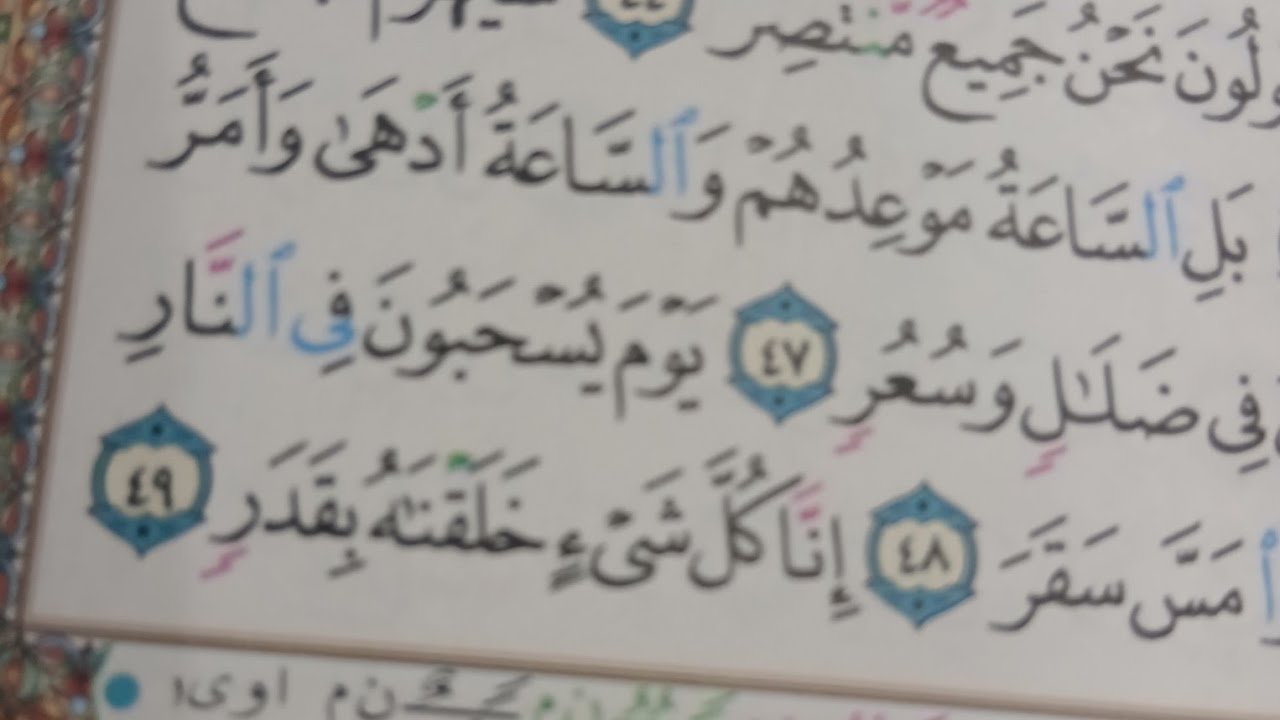 ولُونَ نَحْنُ جَمِيعٌ مُّنتَصِرٌ ٤٤
بَلِ ٱلسَّاعَةُ مَوْعِدُهُمْ وَٱلسَّاعَةُ أَدْهَىٰ وَأَمَرُّ
فِى ضَلَـٰلٍ وَسُعُرٍ ٤٧ يَوْمَ يُسْحَبُونَ فِى ٱلنَّارِ
مَسَّ سَقَرَ ٤٨ إِنَّا كُلَّ شَىْءٍ خَلَقْنَـٰهُ بِقَدَرٍ ٤٩